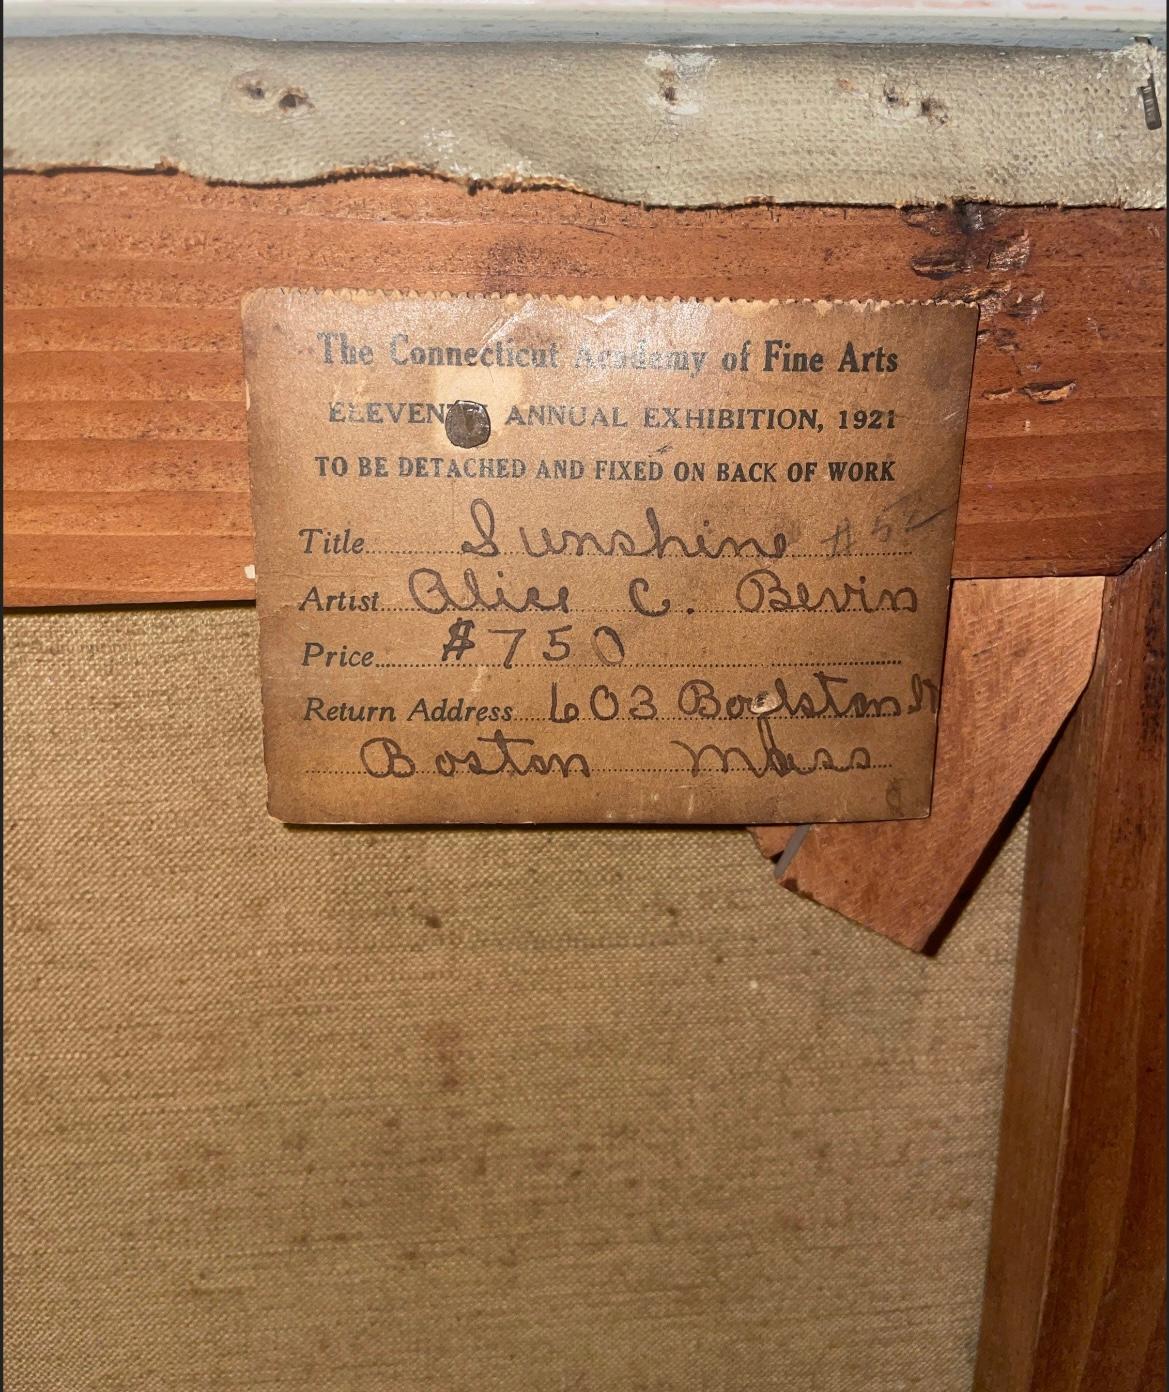 The Connecticut Academy of Fine Arts
ELEVEN ANNUAL EXHIBITION, 1921
TO BE DETACHED AND FIXED ON BACK OF WORK
Title Sunshine
Artist Alice C. Bevin
Price $750
Return Address 603 Boylston St
Boston Mass